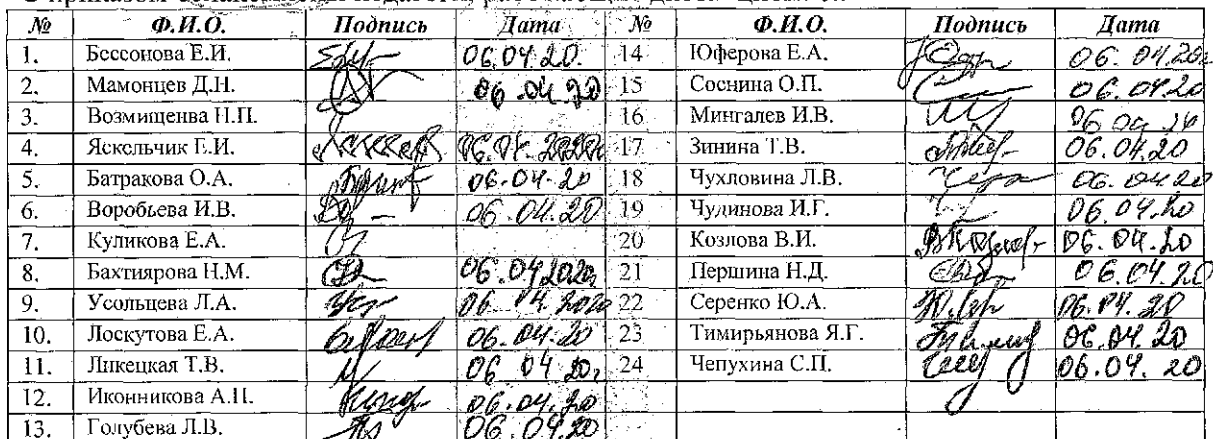 № Ф.И.О. Подпись Дата № Ф.И.О. Подпись Дата
1. Бессонова Е.И. 06.04.20. 14 Юферова Е.А. 06.04.20г
2. Мамонцев Д.Н. 06.04.20 15 Соснина О.П. 06.04.20
3. Возмищенва Н.П. 16 Мингалев И.В. 06.04.20
4. Яскельчик Е.И. 06.04.2020г 17 Зинина Т.В. 06.04.20
5. Батракова О.А. 06.04.20 18 Чухловина Л.В. 06.04.20
6. Воробьева И.В. 06.04.20 19 Чудинова И.Г. 06.04.20
7. Куликова Е.А. 20 Козлова В.И. 06.04.20
8. Бахтиярова Н.М. 06.04.2020г 21 Першина Н.Д. 06.04.20
9. Усольцева Л.А. 06.04.2020 22 Серенко Ю.А. 06.04.20
10. Лоскутова Е.А. 06.04.20 23 Тимирьянова Я.Г. 06.04.20
11. Липецкая Т.В. 06.04.20г 24 Чепухина С.П. 06.04.20
12. Иконникова А.П. 06.04.20
13. Голубева Л.В. 06.04.20